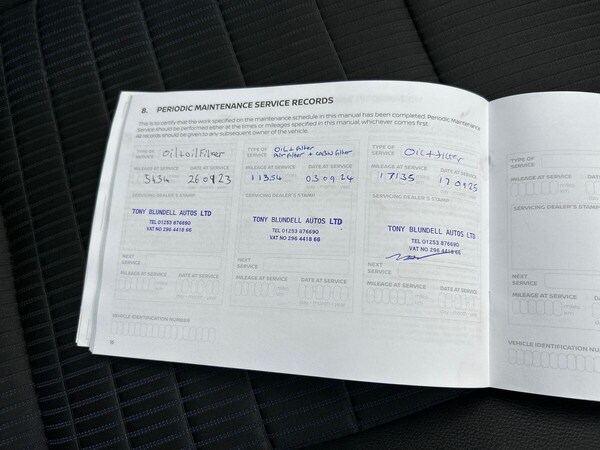 8. PERIODIC MAINTENANCE SERVICE RECORDS
This is to certify that the work specified on the maintenance schedule in this manual has been completed. Periodic Maintenance
Service should be performed either at the times or mileages specified in this manual, whichever comes first.
All records should be given to any subsequent owner of the vehicle.
TYPE OF SERVICE Oil + oil filter
MILEAGE AT SERVICE DATE AT SERVICE
26 09 23
SERVICING DEALER'S STAMP
TONY BLUNDELL AUTOS LTD
TEL 01253 876690
VAT NO 296 4418 66
NEXT SERVICE
MILEAGE AT SERVICE DATE AT SERVICE
VEHICLE IDENTIFICATION NUMBER
TYPE OF SERVICE OIL + filter
AIR filter + CABIN filter
MILEAGE AT SERVICE DATE AT SERVICE
11354 03 09 24
SERVICING DEALER'S STAMP
TONY BLUNDELL AUTOS LTD
TEL 01253 876690
VAT NO 296 4418 66
NEXT SERVICE
MILEAGE AT SERVICE DATE AT SERVICE
TYPE OF SERVICE OIL + filter
MILEAGE AT SERVICE DATE AT SERVICE
17135 17 09 25
SERVICING DEALER'S STAMP
TONY BLUNDELL AUTOS LTD
TEL 01253 876690
VAT NO 296 4418 66
NEXT SERVICE
MILEAGE AT SERVICE DATE AT SERVICE
TYPE OF SERVICE
MILEAGE AT SERVICE DATE
SERVICING DEALER'S STAMP
NEXT SERVICE
MILEAGE AT SERVICE DATE
VEHICLE IDENTIFICATION